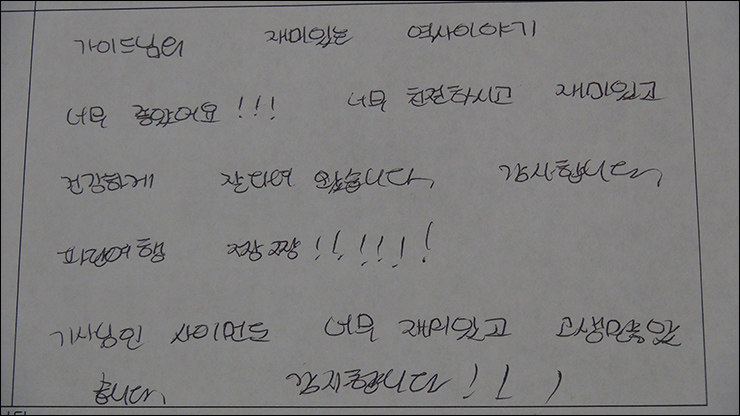 가이드님의 재미있는 역사이야기
너무 좋았어요!!! 너무 친절하시고 재미있고
건강하게 잘다녀 왔습니다. 감사합니다.
파랑여행 짱짱!!!!!!
기사님인 사이먼도 너무 재미있고 고생많으셨
습니다. 감사합니다!!!